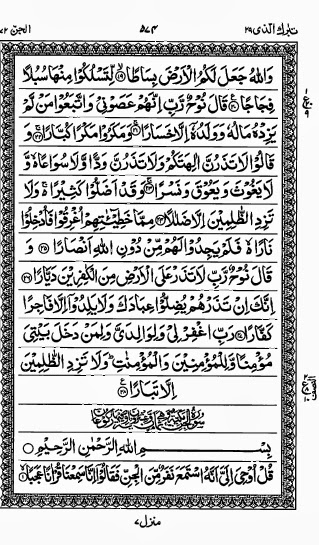 تبٰرك الذی ٢٩ ٥٧٤ الجن ٧٢
وَاللّٰهُ جَعَلَ لَكُمُ الْاَرْضَ بِسَاطًا ۙ﴿١٩﴾ لِّتَسْلُكُوْا مِنْهَا سُبُلًا
فِجَاجًا ﴿٢٠﴾ قَالَ نُوْحٌ رَّبِّ اِنَّهُمْ عَصَوْنِیْ وَاتَّبَعُوْا مَنْ لَّمْ
یَزِدْهُ مَالُهٗ وَوَلَدُهٗۤ اِلَّا خَسَارًا ﴿٢١﴾ وَمَكَرُوْا مَكْرًا كُبَّارًا ﴿٢٢﴾ وَ
قَالُوْا لَا تَذَرُنَّ اٰلِهَتَكُمْ وَلَا تَذَرُنَّ وَدًّا وَّلَا سُوَاعًا ۙ۬ وَّ
لَا یَغُوْثَ وَیَعُوْقَ وَنَسْرًا ﴿٢٣﴾ وَقَدْ اَضَلُّوْا كَثِیْرًا ۚ۬ وَلَا
تَزِدِ الظّٰلِمِیْنَ اِلَّا ضَلٰلًا ﴿٢٤﴾ مِمَّا خَطِیْٓـٰٔتِهِمْ اُغْرِقُوْا فَاُدْخِلُوْا
نَارًا ۙ۬ فَلَمْ یَجِدُوْا لَهُمْ مِّنْ دُوْنِ اللّٰهِ اَنْصَارًا ﴿٢٥﴾ وَ
قَالَ نُوْحٌ رَّبِّ لَا تَذَرْ عَلَی الْاَرْضِ مِنَ الْكٰفِرِیْنَ دَیَّارًا ﴿٢٦﴾
اِنَّكَ اِنْ تَذَرْهُمْ یُضِلُّوْا عِبَادَكَ وَلَا یَلِدُوْۤا اِلَّا فَاجِرًا
كَفَّارًا ﴿٢٧﴾ رَبِّ اغْفِرْ لِیْ وَلِوَالِدَیَّ وَلِمَنْ دَخَلَ بَیْتِیَ
مُؤْمِنًا وَّلِلْمُؤْمِنِیْنَ وَالْمُؤْمِنٰتِ ؕ وَلَا تَزِدِ الظّٰلِمِیْنَ
اِلَّا تَبَارًا ﴿٢٨﴾
بِسْمِ اللّٰهِ الرَّحْمٰنِ الرَّحِیْمِ
قُلْ اُوْحِیَ اِلَیَّ اَنَّهُ اسْتَمَعَ نَفَرٌ مِّنَ الْجِنِّ فَقَالُوْۤا اِنَّا سَمِعْنَا قُرْاٰنًا عَجَبًا ۙ﴿١﴾
منزل ٧